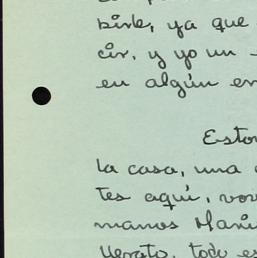 birle, ya que
cir, y yo un
en algún en
Esto
la casa, una
tes aquí, vos
manos Mari
Renato, todo es